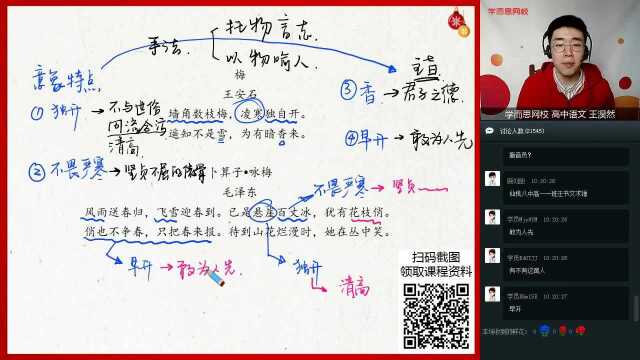 手法
托物言志
以物喻人
意象特点
① 独开 → 不与世俗
同流合污
清高
② 不畏严寒 → 坚贞不屈的傲骨
③ 香 → 君子之德
④ 早开 → 敢为人先
梅
王安石
墙角数枝梅，凌寒独自开。
遥知不是雪，为有暗香来。
卜算子·咏梅
毛泽东
不畏严寒 → 坚贞
风雨送春归，飞雪迎春到。已是悬崖百丈冰，犹有花枝俏。
俏也不争春，只把春来报。待到山花烂漫时，她在丛中笑。
早开 → 敢为人先
独开
清高
扫码截图
领取课程资料
学而思网校
学而思网校 高中语文 王溴然
讨论人数(21545)
10:20:26
仙桃八中高一一班王书文求锤
10:20:26
敢为人先
10:20:26
10:20:27
早开